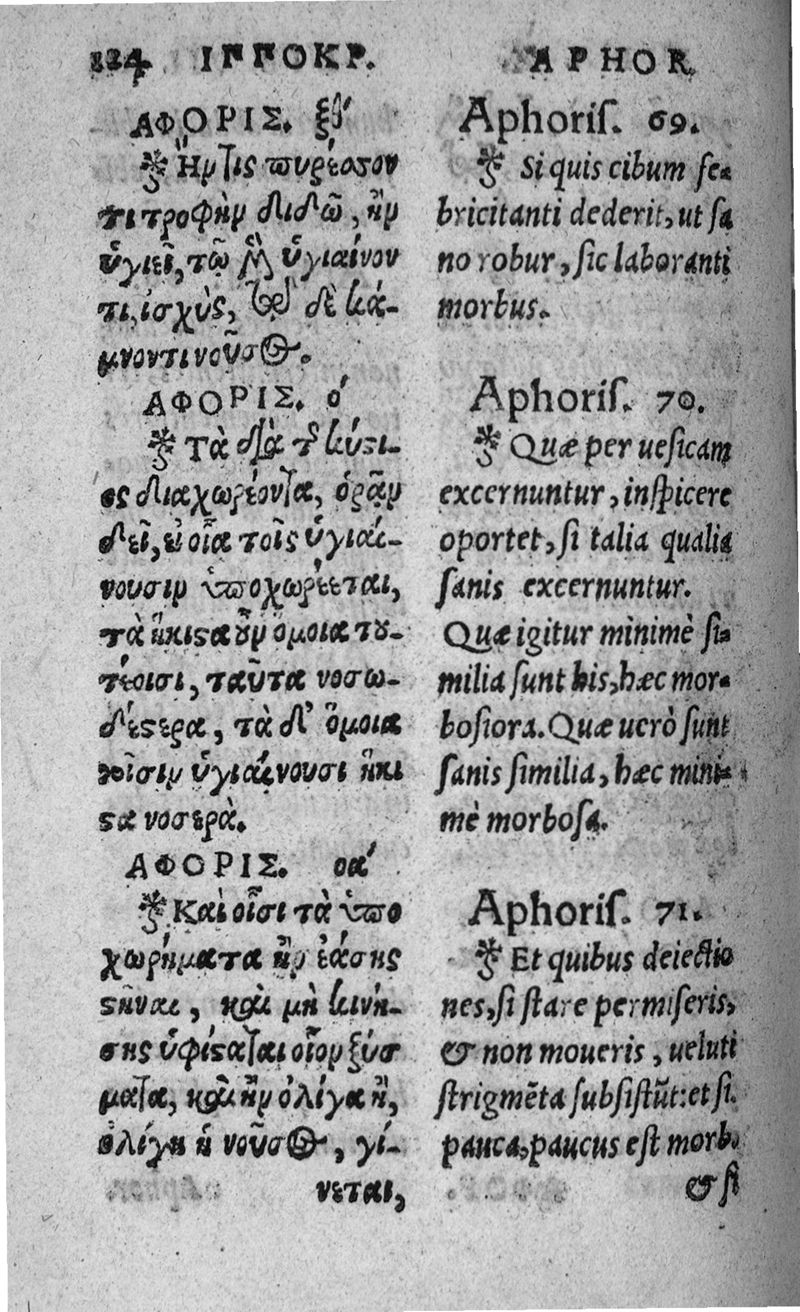 124 ΙΠΠΟΚΡ.
ΑΦΟΡΙΣ. ξθ′
Ην τις πυρέσσον
τι τροφὴν διδῶ, ἣν
ὑγιεῖ, τῷ μὲν ὑγιαίνον
τι, ἰσχὺς, τῷ δὲ κά-
μνοντι νοῦσος.
ΑΦΟΡΙΣ. ο′
Τὰ διὰ τῆς κύστι-
ος διαχωρέοντα, ὁρᾶν
δεῖ, εἰ οἷα τοῖς ὑγιαί-
νουσιν ὑποχωρέεται,
τὰ ἥκιστα οὖν ὅμοια του-
τέοισι, ταῦτα νοσω-
δέστερα, τὰ δ' ὅμοια
τοῖσιν ὑγιαίνουσι ἥκι
στα νοσερὰ.
ΑΦΟΡΙΣ. οα′
Καὶ οἷσι τὰ ὑπο
χωρήματα ἢν ἐάσης
στῆναι, καὶ μὴ κινή-
σης ὑφίσταται οἷον ξύσ
ματα, καὶ ἢν ὀλίγα ἦ,
ὀλίγη ἡ νοῦσος, γί-
νεται,
APHOR
Aphoris. 69.
Si quis cibum fe-
bricitanti dederit, ut sa
no robur, sic laboranti
morbus.
Aphoris. 70.
Quæ per uesicam
excernuntur, inspicere
oportet, si talia qualia
sanis excernuntur.
Quæ igitur minimè si-
milia sunt his, hæc mor-
bosiora. Quæ uerò sunt
sanis similia, hæc mini-
mè morbosa.
Aphoris. 71.
Et quibus deiectio
nes, si stare permiseris,
& non moueris, ueluti
strigmēta subsistūt: et si
pauca, paucus est morb.
& si